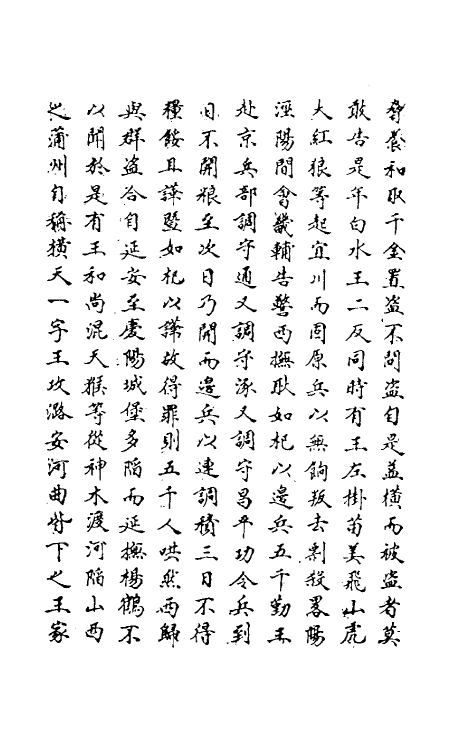 養和取千金置盜不問盜自是益橫而被盜者莫
敢告是年白水王二反同時有王左掛苗美飛山虎
大紅狼等起宜川而固原兵以無餉叛去剽掠畧陽
涇陽間會畿輔告警西撫耿如杞以邊兵五千勤王
赴京兵部調守通又調守涿又調守昌平功令兵到
日不開糧至次日乃開而邊兵以連調積三日不得
糧餒且譁暨如杞以譁故得罪則五千人哄然西歸
與群盜合自延安至慶陽城堡多陷而延撫楊鶴不
以聞於是有王和尚混天猴等從神木渡河陷山西
之蒲州自稱橫天一字王攻潞安河曲皆下之王家